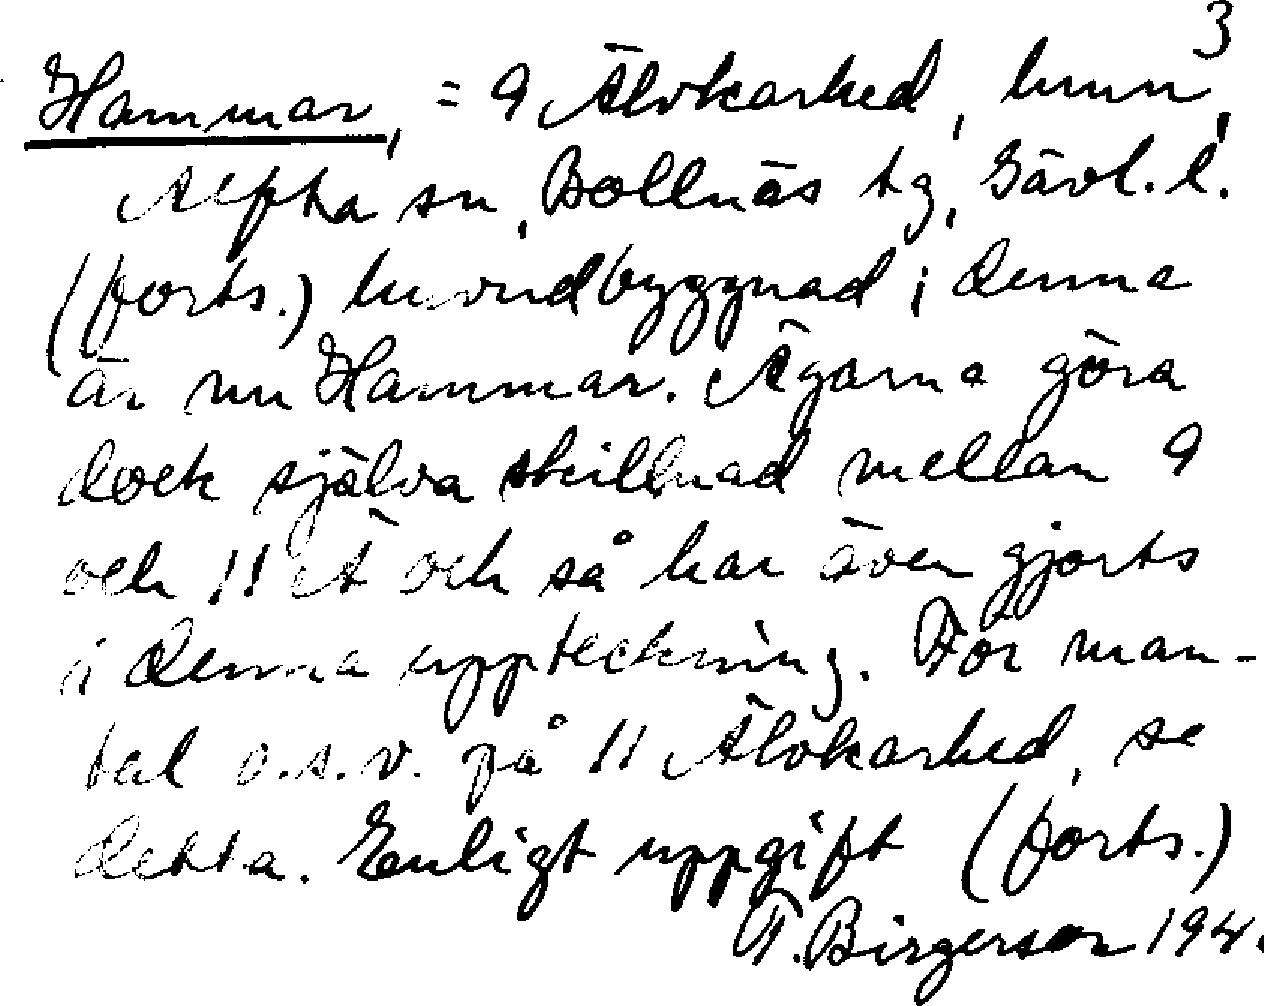 3
Hammar, = 9 Älvkarhed, hmn,
Alfta sn, Bollnäs tg, Gävl. l.
(forts.) huvudbyggnad i denna
är nu Hammar. Ägarna göra
dock själva skillnad mellan 9
och 11 Ä och så har även gjorts
i denna uppteckning. För man-
tal o.s.v. på 11 Älvkarhed, se
detta. Enligt uppgift (forts.)
T. Birgerson 194.